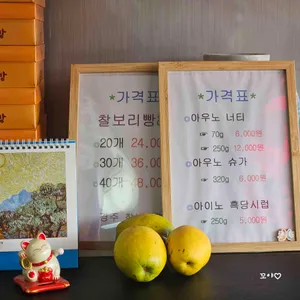 *가격표*
찰보리빵
20개 24,000
30개 36,000
40개 48,000
경주
*가격표*
아우노 너티
☞ 70g 8,000원
☞ 250g 12,000원
아우노 슈가
☞ 320g 8,000원
아이노 흑당시럽
☞ 250g 5,000원
방
꼬야♡